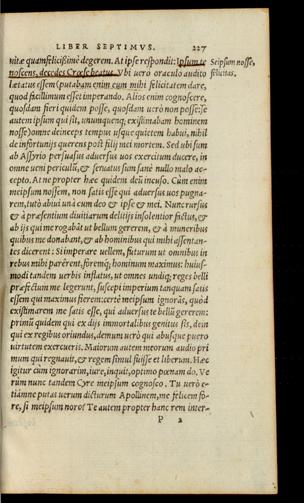 LIBER SEPTIMVS. 227
uitæ quamfelicißimè degerem. At ipse respondit: Ipsum te
noscens, decedes Crœse beatus. Vbi uerò oraculo audito
lætatus essem (putabam enim eum mihi felicitatem dare,
quod facillimum esset imperando. Alios enim cognoscere,
quosdam fieri quidem posse, quosdam uerò non posse: se
autem ipsum qui sit, unumquenq; existimabam hominem
nosse) omne deinceps tempus usque quietem habui, nihil
de infortunijs querens post filij mei mortem. Sed ubi sum
ab Assyrio persuasus aduersus uos exercitum ducere, in
omne ueni periculũ, & seruatus sum sanè nullo malo ac-
cepto. At ne propter hæc quidem deũ incuso. Cùm enim
meipsum nossem, non satis esse qui aduersus uos pugna-
rem, tutò abiui unà cum deo & ipse & mei. Nunc rursus
& à præsentium diuitiarum delitijs insolentior factus, &
ab ijs qui me rogabãt ut bellum gererem, & à muneribus
quibus me donabant, & ab hominibus qui mihi assentan-
tes dicerent: Si imperare uellem, futurum ut omnibus in
rebus mihi parêrent, foremq; hominum maximus: huius-
modi tandem uerbis inflatus, ut omnes undiq; reges belli
præfectum me legerunt, suscepi imperium tanquam satis
essem qui maximus fierem: certè meipsum ignorãs, quòd
existimarem me satis esse, qui aduersus te bellũ gererem:
primũ quidem qui ex dijs immortalibus genitus sis, dein
qui ex regibus oriundus, demum uerò qui abusque puero
uirtutem exercueris. Maiorum autem meorum audio pri
mum qui regnauit, & regem simul fuisse et liberum. Hæc
igitur cùm ignorarim, iure, inquit, optimo pœnam do. Ve
rùm nunc tandem Cyre meipsum cognosco. Tu uerò e-
tiãmne putas uerum dicturum Apollinem, me felicem fo-
re, si meipsum noro? Te autem propter hanc rem inter-
P 2
Seipsum nosse,
felicitas.